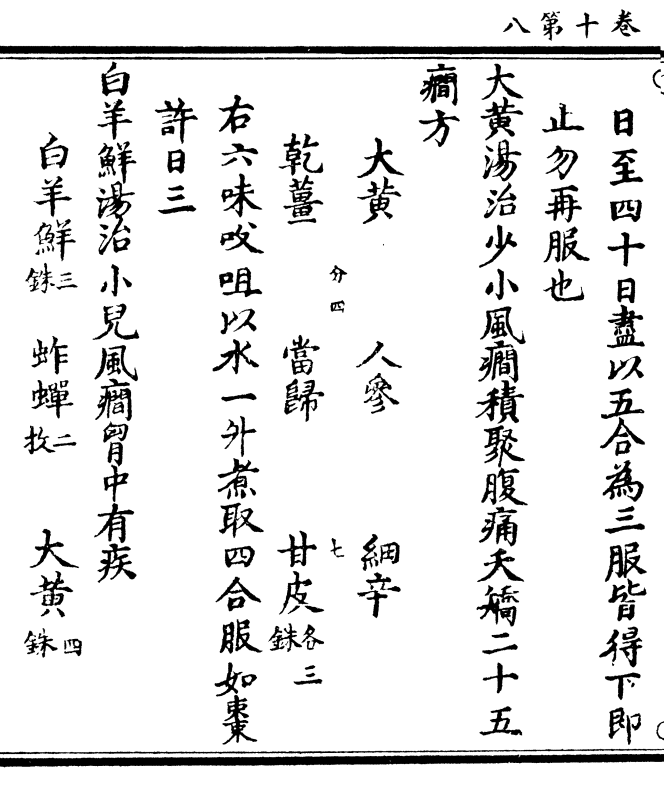 卷十第八
日至四十日盡以五合為三服皆得下即
止勿再服也
大黃湯治少小風癇積聚腹痛夭矯二十五
癇方
大黃 人參 細辛
四分 七
乾薑 當歸 甘皮各三銖
右六味㕮咀以水一升煮取四合服如棗
許日三
白羊鮮湯治小兒風癇胷中有疾
白羊鮮三銖 蚱蟬二枚 大黃四銖